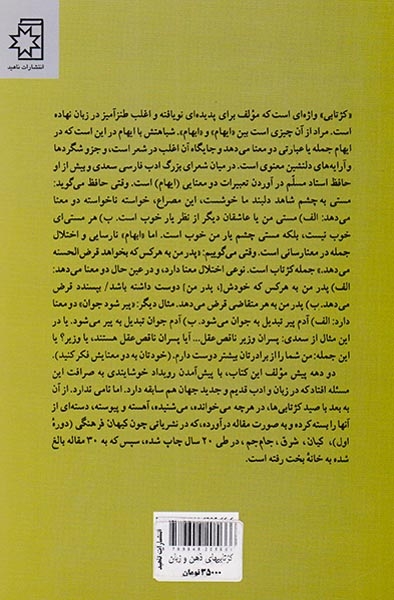 انتشارات ناهید
«کژتابی» واژه‌ای است که مؤلف برای پدیده‌ای نویافته و اغلب طنزآمیز در زبان نهاده
است. مراد از آن چیزی است بین «ایهام» و «ابهام». شباهتش با ایهام در این است که در
ایهام جمله یا عبارتی دو معنا می‌دهد و جایگاه آن اغلب در شعر است، و جزو شگردها
و آرایه‌های دلنشین معنوی است. در میان شعرای بزرگ ادب فارسی سعدی و بیش از او
حافظ استاد مسلّم در آوردن تعبیرات دو معنایی (ایهام) است. وقتی حافظ می‌گوید:
مستی به چشم شاهد دلبند ما خوشست، این مصراع، خواسته ناخواسته دو معنا
می‌دهد: الف) مستی من یا عاشقان دیگر از نظر یار خوب است. ب) هر مستی‌ای
خوب نیست، بلکه مستی چشم یار من خوب است. اما «ابهام» نارسایی و اختلال
جمله در معنارسانی است. وقتی می‌گوییم: «پدر من به هرکس که بخواهد قرض‌الحسنه
می‌دهد.» جمله کژتاب است. نوعی اختلال معنا دارد، و در عین حال دو معنا می‌دهد:
الف) پدر من به هرکس که خودش [، پدر من] دوست داشته باشد/ بپسندد قرض
می‌دهد. ب) پدر من به هر متقاضی قرض می‌دهد. مثال دیگر: «پیر شود جوان» دو معنا
دارد: الف) آدم پیر تبدیل به جوان می‌شود. ب) آدم جوان تبدیل به پیر می‌شود. یا در
این مثال از سعدی: پسران وزیر ناقص‌عقل... آیا پسران ناقص‌عقل هستند، یا وزیر؟ یا
این جمله: من شما را از برادرتان بیشتر دوست دارم. (خودتان به دو معنایش فکر کنید).
دو دهه پیش مؤلف این کتاب، با پیش‌آمدن رویداد خوشایندی به صرافت این
مسئله افتاد که در زبان و ادب قدیم و جدید جهان هم سابقه دارد. اما نامی ندارد. از آن
به بعد با صید کژتابی‌ها، در هرچه می‌خوانده، می‌شنیده، آهسته و پیوسته، دسته‌ای از
آنها را بسته کرده و به صورت مقاله درآورده، که در نشریاتی چون کیهان فرهنگی (دورهٔ
اول)، کیان، شرق، جام‌جم، در طی ۲۰ سال چاپ شده، سپس که به ۳۰ مقاله بالغ
شده به خانهٔ بخت رفته است.
انتشارات ناهید
کژتابیهای ذهن و زبان
۳۵۰۰۰ تومان